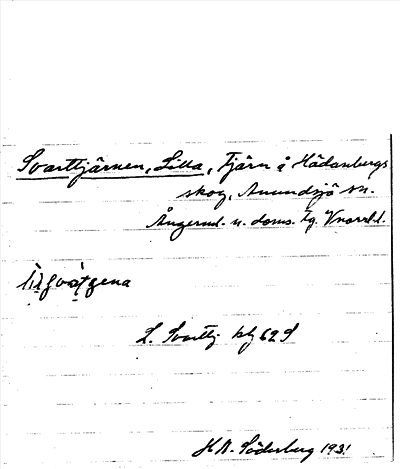 Svarttjärnen, Lilla, Tjärn å Hädanbergs
skog, Anundsjö sn.
Ångerml. n. doms. Tg. Vnorrl. l.
L. Svarttj blj 62 S
H. A. Söderberg 1931